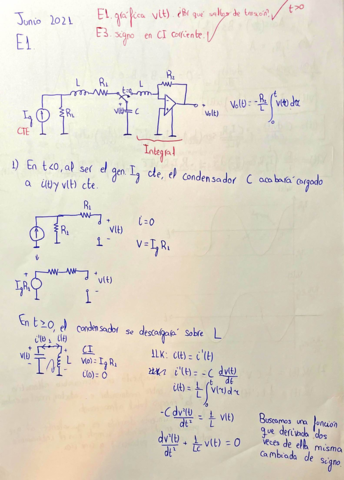 Junio 2021
E1. gráfica v(t) ¿De que voltaje de tensión t>0
E3 signo en CI corriente!
E1
L R₁ t=0 L R₂
Ig R₁ v(t) C Vo(t)
CTE
Integral
Vo(t) = -R₂/L ∫₀ᵗ v(τ) dτ
1) En t<0, al ser el gen. Ig cte, el condensador C acabará cargado
a i(t) y v(t) cte.
R₁
R₁ v(t)
i=0
V = Ig R₁
IgR₁ v(t)
En t≥0, el condensador se descargará sobre L
i'(t) i(t)
v(t) L
CI
v(0) = Ig R₁
i(0) = 0
1LK: i(t) = i'(t)
i'(t) = -C dv(t)/dt
i(t) = 1/L ∫₀ᵗ v(τ) dτ
-C dv²(t)/dt² = 1/L v(t)
dv²(t)/dt² + 1/LC v(t) = 0
Buscamos una función
que derivada dos
veces de ella misma
cambiada de signo